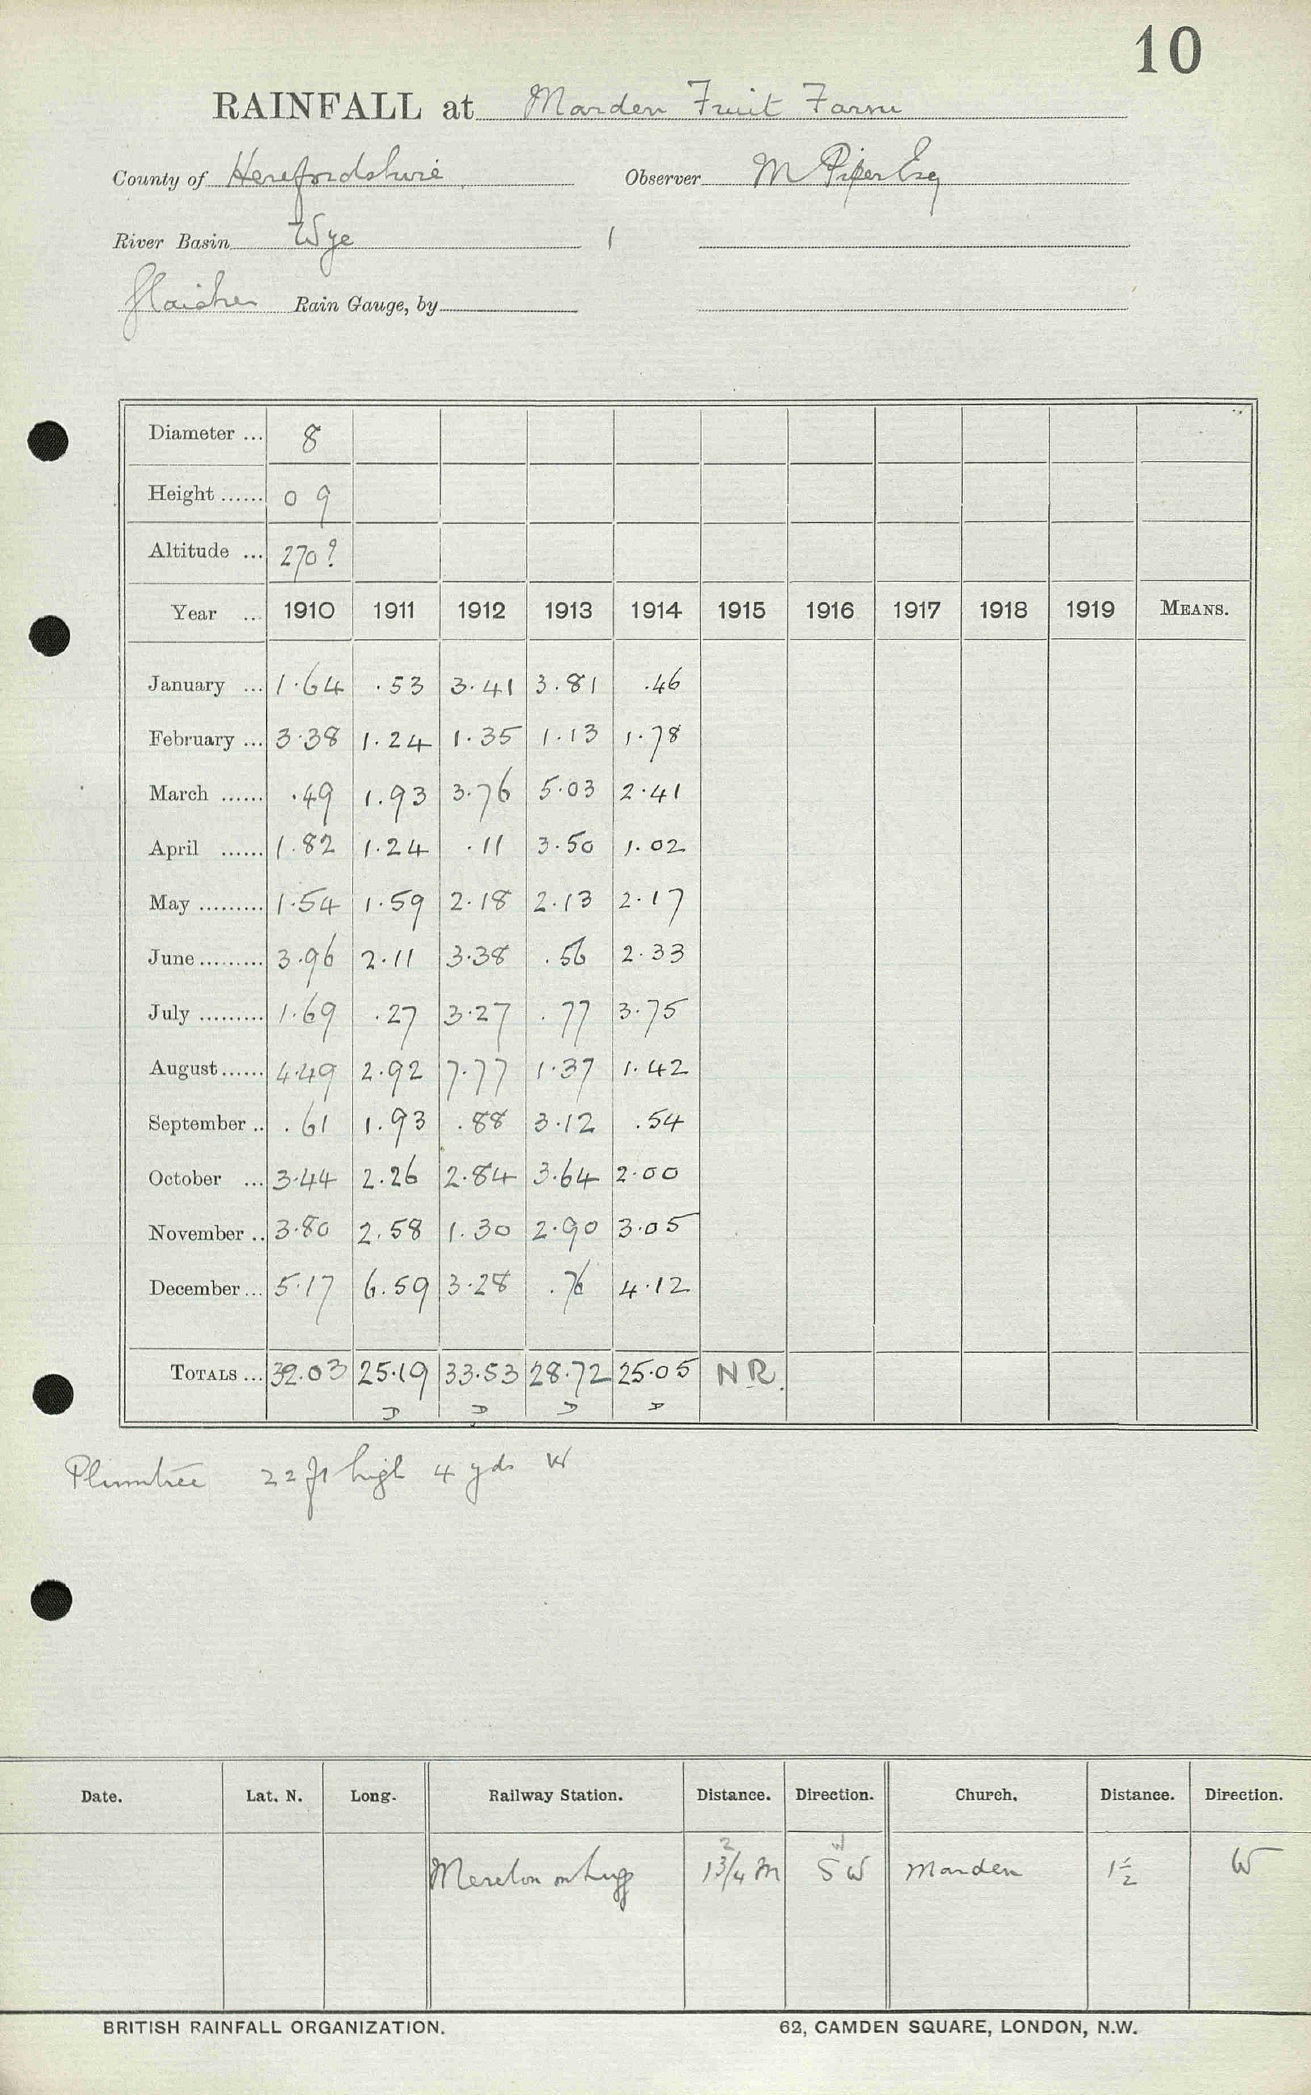 10
RAINFALL at Marden Fruit Farm
County of Herefordshire Observer M Piper Esq
River Basin Wye 1
Glaisher Rain Gauge, by
Diameter ... 8
Height ...... 0 9
Altitude ... 270?
Year ... 1910 1911 1912 1913 1914 1915 1916 1917 1918 1919 MEANS.
January ... 1.64 .53 3.41 3.81 .46
February ... 3.38 1.24 1.35 1.13 1.78
March ...... .49 1.93 3.76 5.03 2.41
April ...... 1.82 1.24 .11 3.50 1.02
May ......... 1.54 1.59 2.18 2.13 2.17
June ......... 3.96 2.11 3.38 .56 2.33
July ......... 1.69 .27 3.27 .77 3.75
August ...... 4.49 2.92 7.77 1.37 1.42
September .. .61 1.93 .88 3.12 .54
October ... 3.44 2.26 2.84 3.64 2.00
November .. 3.80 2.58 1.30 2.90 3.05
December ... 5.17 6.59 3.28 .76 4.12
TOTALS ... 32.03 25.19 33.53 28.72 25.05 NR.
D D D D
Plumtree 22 ft high 4 yds W
Date. Lat. N. Long. Railway Station. Distance. Direction. Church. Distance. Direction.
2 W
Moreton on Lugg 1 3/4 M SW Marden 1 1/2 W
BRITISH RAINFALL ORGANIZATION. 62, CAMDEN SQUARE, LONDON, N.W.